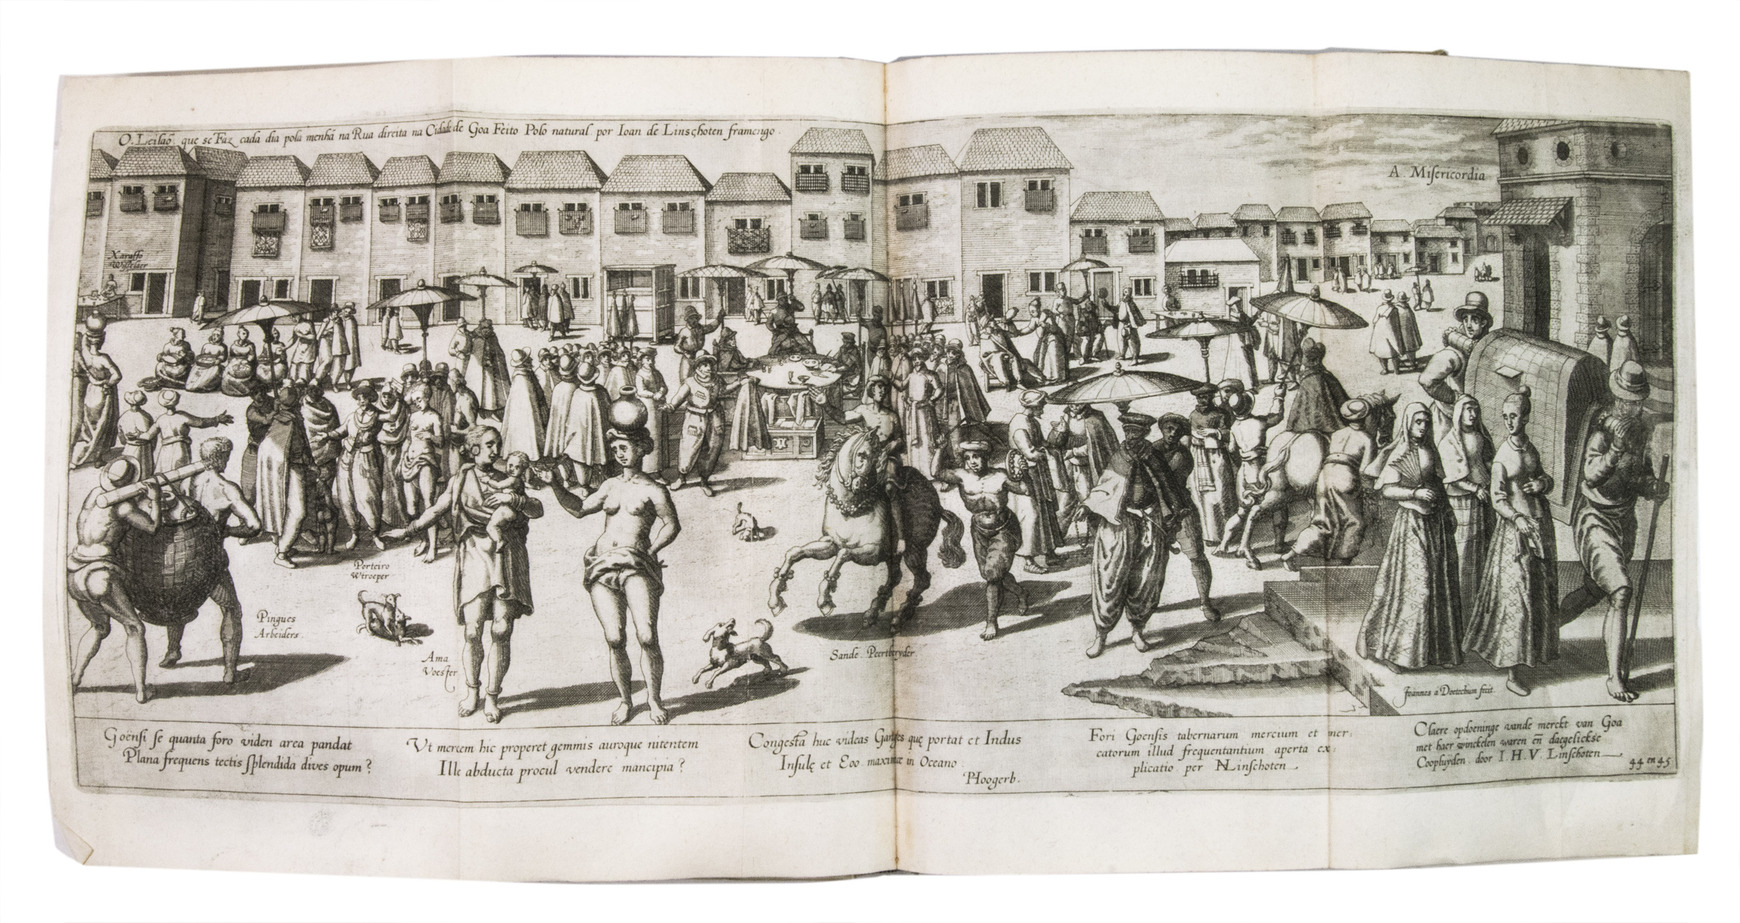 O Leilaõ que se Faz cada dia pola menhá na Rua direita na Cidade de Goa Feito Polo natural por Ioan de Linschoten framengo.
A. Misericordia
Xaraffo
Wisseler
Perteiro
Wtroeper
Pingues
Arbeiders
Ama
Voester
Sande. Peertsryder
Joannes a Doetechum fecit.
Goënsi se quanta foro viden area pandat
Plana frequens tectis splendida dives opum?
Vt mercem hic properet gemmis auroque nitentem
Ille abducta procul vendere mancipia?
Congesta huc videas Ganges quę portat et Indus
Insulę et Eoo maximę in Oceano
PHoogerb.
Fori Goensis tabernarum mercium et mer,
catorum illud frequentantium aperta ex,
plicatio per N Linschoten
Claere opdoeninge vande merckt van Goa
met haer winckelen waren eñ daegeliekse
Coopluyden. door I.H.V. Linschoten
44 en 45